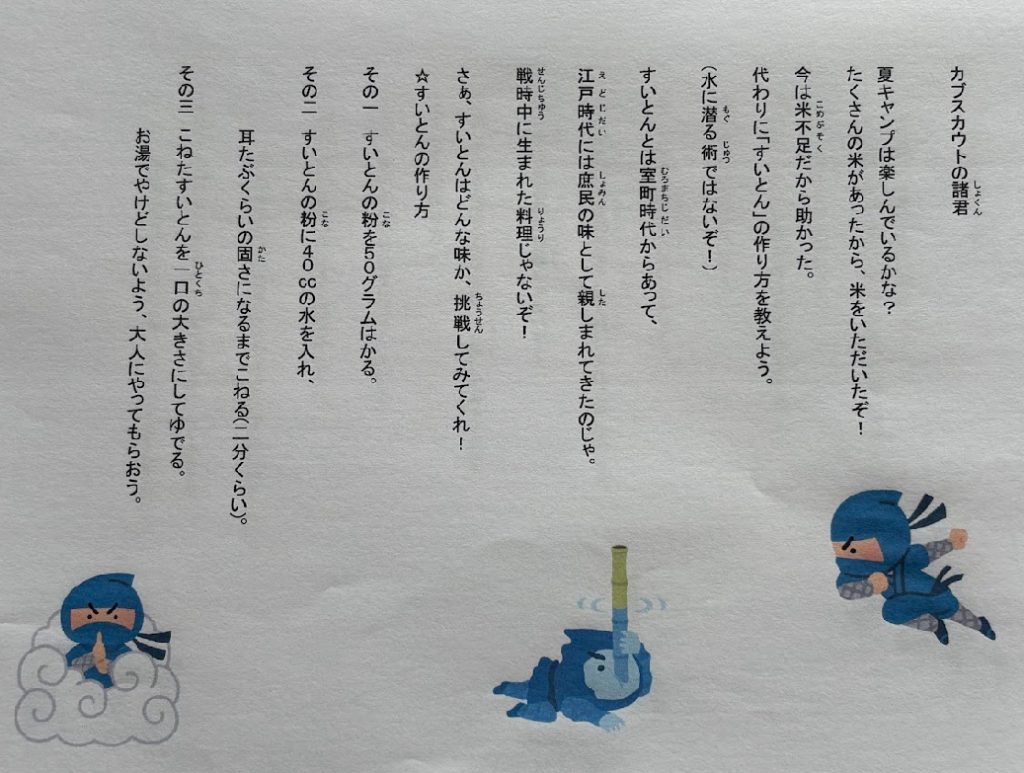 カブスカウトの諸君
夏キャンプは楽しんでいるかな？
たくさんの米があったから、米をいただいたぞ！
今は米不足だから助かった。
代わりに「すいとん」の作り方を教えよう。
（水に潜る術ではないぞ！）
すいとんとは室町時代からあって、
江戸時代には庶民の味として親しまれてきたのじゃ。
戦時中に生まれた料理じゃないぞ！
さぁ、すいとんはどんな味か、挑戦してみてくれ！
☆すいとんの作り方
その一　すいとんの粉を５０グラムはかる。
その二　すいとんの粉に４０ccの水を入れ、
耳たぶくらいの固さになるまでこねる（二分くらい）。
その三　こねたすいとんを一口の大きさにしてゆでる。
お湯でやけどしないよう、大人にやってもらおう。